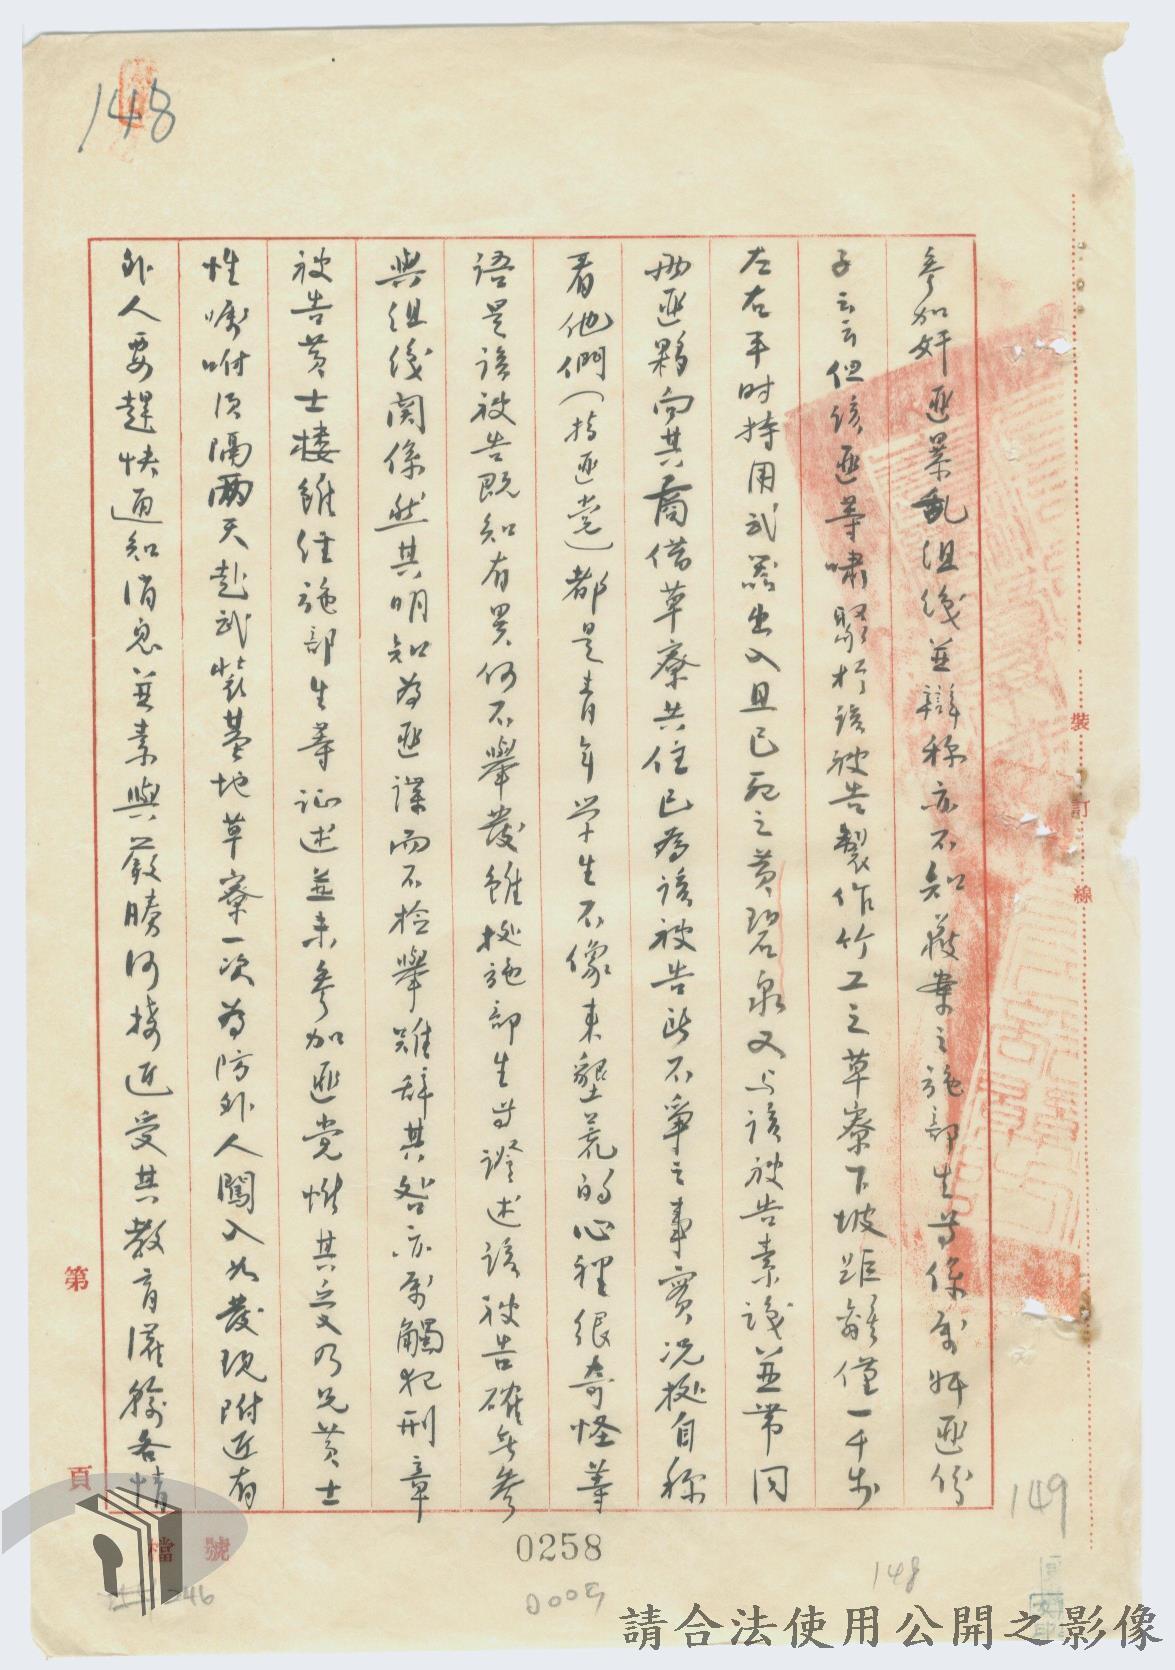 148
參加奸匪叛亂組織並辯称亦不知藏案之施部生等係屬奸匪份
子云云但該匪等嘯聚於該被告製作竹工之草寮下坡距離僅一千步
左右平时持用武器出入且已死之黃碧泉又与該被告素識並帶同
兩匪夥向其商借草寮共住已為該被告所不爭之事實况據自称
看他們(指匪党)都是青年学生不像来墾荒的心裡很奇怪等
语是該被告既知有異何不舉發雖據施部生等證述該被告確無參
與组织関係然其明知為匪諜而不检舉難辞其咎亦屬觸犯刑章
被告黃士樓雖经施部生等证述並未參加匪党惟其受乃兄黃士
性嘱咐須隔兩天赴武裝基地草寮一次為防外人闖入如發现附近有
外人要趕快通知消息並素與嚴勝河接近受其教育灌輸各情
裝
訂
線
第
頁
檔 號
0258
149
148
請合法使用公開之影像